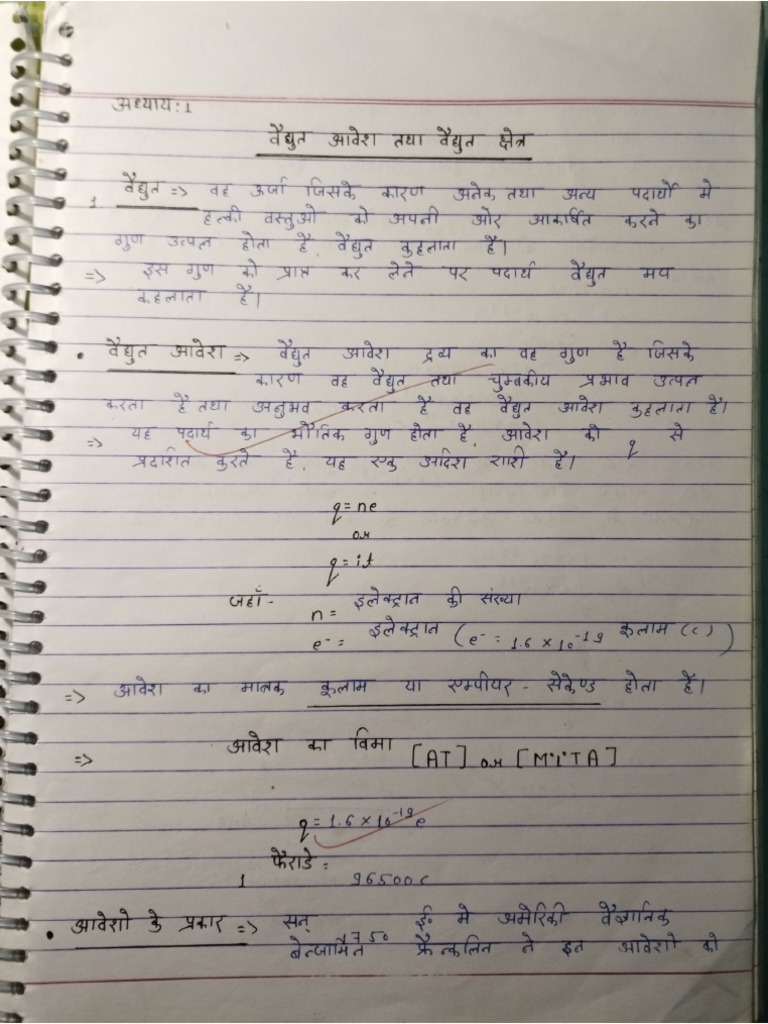 अध्याय:1
वैद्युत आवेश तथा वैद्युत क्षेत्र
1 वैद्युत => वह ऊर्जा जिसके कारण अनेक तथा अन्य पदार्थो मे
हल्की वस्तुओ को अपनी ओर आकर्षित करने का
गुण उत्पन्न होता है, वैद्युत कहलाता है।
=> इस गुण को प्राप्त कर लेने पर पदार्थ वैद्युत मय
कहलाता है।
• वैद्युत आवेश => वैद्युत आवेश द्रव्य का वह गुण है जिसके
कारण वह वैद्युत तथा चुम्बकीय प्रभाव उत्पन्न
करता है तथा अनुभव करता है वह वैद्युत आवेश कहलाता है।
=> यह पदार्थ का भौतिक गुण होता है, आवेश को q से
प्रदर्शित करते है, यह एक अदिश राशी है।
q = ne
or
q = it
जहाँ- n = इलेक्ट्रान की संख्या
e⁻ = इलेक्ट्रान (e⁻ = 1.6 × 10⁻¹⁹ कूलाम (c))
=> आवेश का मात्रक कूलाम या एम्पीयर - सेकेण्ड होता है।
=> आवेश का विमा [AT] or [M°L°TA]
q = 1.6 × 10⁻¹⁹ e
1 फैराडे = 96500c
• आवेशो के प्रकार => सन् 1750 ई० मे अमेरिकी वैज्ञानिक
बेन्जामिन फ्रैन्कलिन ने इन आवेशो को